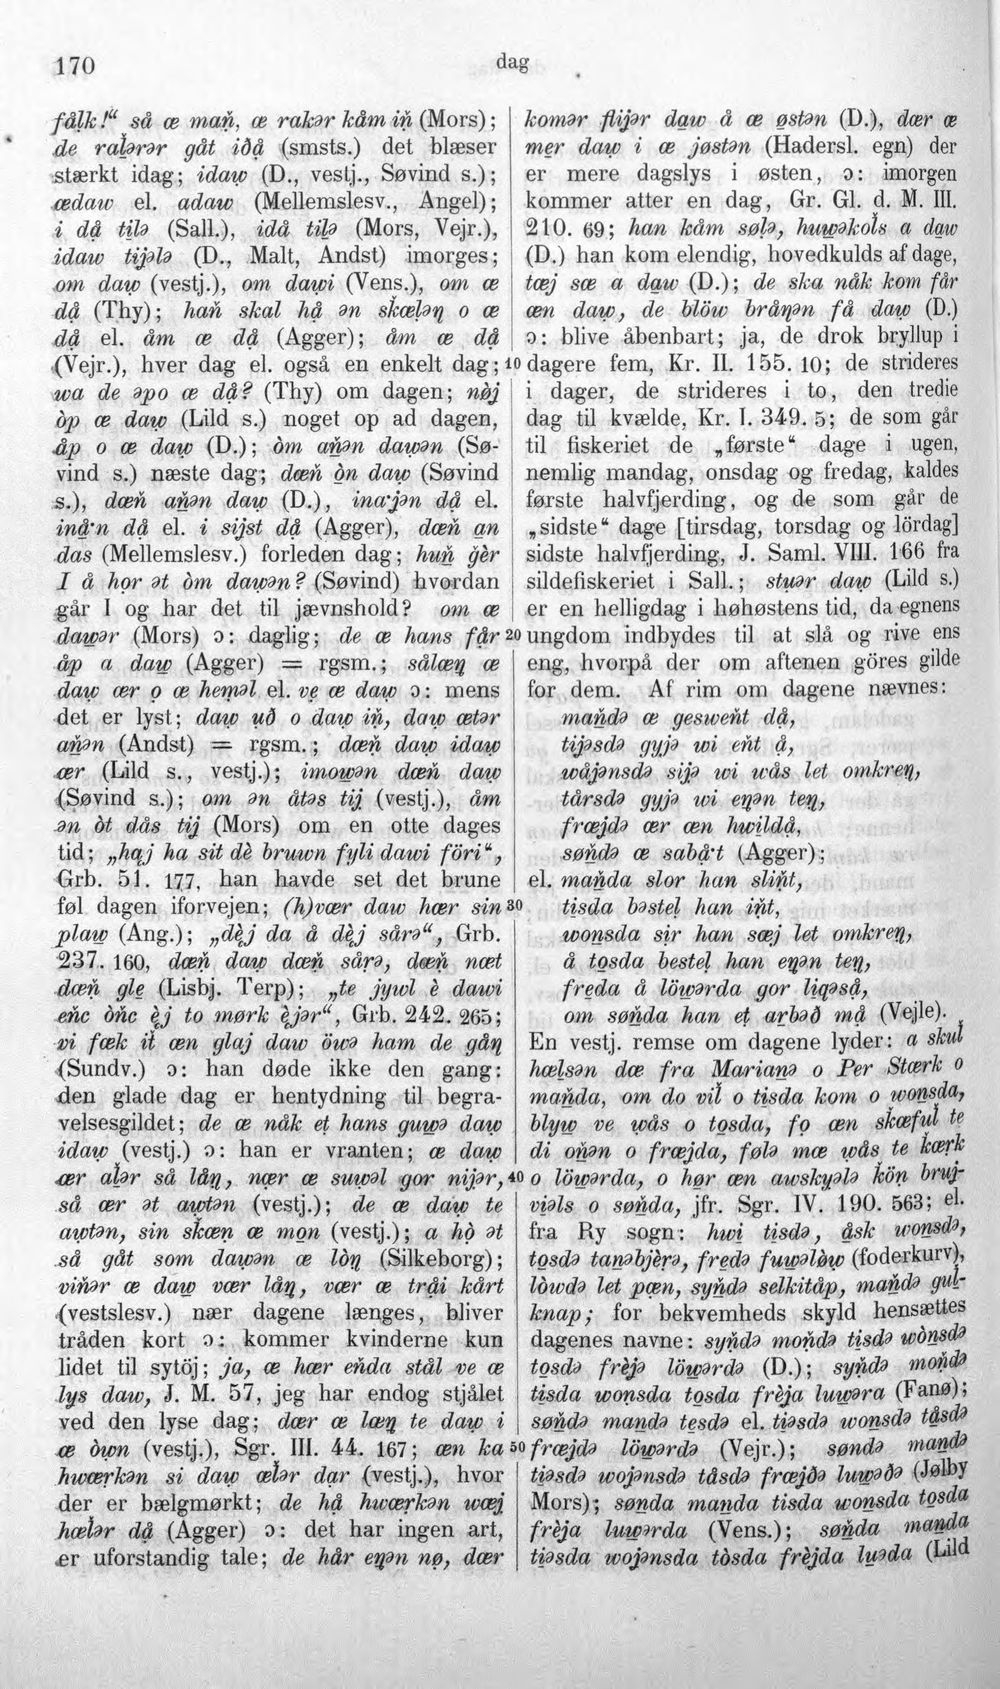 170
dag
fålk!“ så æ mań, æ rakər kåm iń (Mors);
de ralərər gåt iðå (smsts.) det blæser
stærkt idag; idaw (D., vestj., Søvind s.);
ædaw el. adaw (Mellemslesv., Angel);
i då tilə (Sall.), idå tilə (Mors, Vejr.),
idaw tijələ (D., Malt, Andst) imorges;
om daw (vestj.), om dawi (Vens.), om æ
då (Thy); hań skal hå ən skæləŋ o æ
då el. åm æ då (Agger); åm æ då
(Vejr.), hver dag el. også en enkelt dag;
wa de əpo æ då? (Thy) om dagen; nòj
òp æ daw (Lild s.) noget op ad dagen,
åp o æ daw (D.); òm ańən dawən (Sø-
vind s.) næste dag; dæń òn daw (Søvind
s.), dæń ańən daw (D.), ina·jən då el.
inå·n då el. i sijst då (Agger), dæń an
das (Mellemslesv.) forleden dag; huń gèr
I å hor ət òm dawən? (Søvind) hvordan
går I og har det til jævnshold? om æ
dawər (Mors) ɔ: daglig; de æ hans får
åp a daw (Agger) = rgsm.; sålæŋ æ
daw ær o æ heməl el. ve æ daw ɔ: mens
det er lyst; daw uð o daw iń, daw ætər
ańən (Andst) = rgsm.; dæń daw idaw
ær (Lild s., vestj.); imowən dæń daw
(Søvind s.); om ən åtəs tij (vestj.), åm
ən òt dås tij (Mors) om en otte dages
tid; „haj ha sit dè bruwn fyli dawi föri“,
Grb. 51. 177, han havde set det brune
føl dagen iforvejen; (h)vær daw hær sin
plaw (Ang.); „dèj da å dèj sårə“, Grb.
237. 160, dæń daw dæń sårə, dæń næt
dæń gle (Lisbj. Terp); „te jywl è dawi
eńc òńc èj to mørk èjər“, Grb. 242. 265;
vi fæk it æn glaj daw öwə ham de gåŋ
(Sundv.) ɔ: han døde ikke den gang:
den glade dag er hentydning til begra-
velsesgildet; de æ nåk et hans guwə daw
idaw (vestj.) ɔ: han er vranten; æ daw
ær alər så låŋ, nær æ suwəl gor nijər,
så ær ət awtən (vestj.); de æ daw te
awtən, sin skæn æ mon (vestj.); a hò ət
så gåt som dawən æ lòŋ (Silkeborg);
vińər æ daw vær låŋ, vær æ tråi kårt
(vestslesv.) nær dagene længes, bliver
tråden kort ɔ: kommer kvinderne kun
lidet til sytöj; ja, æ hær eńda stål ve æ
lys daw, J. M. 57, jeg har endog stjålet
ved den lyse dag; dær æ læŋ te daw i
æ òwn (vestj.), Sgr. III. 44. 167; æn ka
hwærkən si daw ælər dar (vestj.), hvor
der er bælgmørkt; de hå hwærkən wæj
hælər då (Agger) ɔ: det har ingen art,
er uforstandig tale; de hår eŋən nø, dær
komər flijər daw å æ østən (D.), dær æ
mer daw i æ jøstən (Hadersl. egn) der
er mere dagslys i østen, ɔ: imorgen
kommer atter en dag, Gr. Gl. d. M. III.
210. 69; han kåm sølə, huwəkols a daw
(D.) han kom elendig, hovedkulds af dage,
tæj sæ a daw (D.); de ska nåk kom får
æn daw, de blöw bråŋən få daw (D.)
ɔ: blive åbenbart; ja, de drok bryllup i
10 dagere fem, Kr. II. 155. 10; de strideres
i dager, de strideres i to, den tredie
dag til kvælde, Kr. I. 349. 5; de som går
til fiskeriet de „første“ dage i ugen,
nemlig mandag, onsdag og fredag, kaldes
første halvfjerding, og de som går de
„sidste“ dage [tirsdag, torsdag og lördag]
sidste halvfjerding, J. Saml. VIII. 166 fra
sildefiskeriet i Sall.; stuər daw (Lild s.)
er en helligdag i høhøstens tid, da egnens
20 ungdom indbydes til at slå og rive ens
eng, hvorpå der om aftenen göres gilde
for dem. Af rim om dagene nævnes:
mańdə æ gesweńt då,
tijəsdə gyjə wi eńt å,
wåjənsdə sijə wi wås let omkreŋ,
tårsdə gyjə wi eŋən teŋ,
fræjdə ær æn hwildå,
søńdə æ sabå·t (Agger);
el. mańda slor han slińt,
30 tisda bəstel han ińt,
wonsda sir han sæj let omkreŋ,
å tosda bestel han eŋən teŋ,
freda å löwərda gor liqəså,
om søńda han et arbəð må (Vejle).
En vestj. remse om dagene lyder: a skul
hælsən dæ fra Marianə o Per Stærk o
mańda, om do vil o tisda kom o wonsda,
blyw ve wås o tosda, fo æn skæful te
di ońən o fræjda, følə mæ wås te kærk
40 o löwərda, o hør æn awskyələ kön bruj-
viəls o sønda, jfr. Sgr. IV. 190. 563; el.
fra Ry sogn: hwi tisdə, åsk wonsdə,
tosdə tanəbjèrə, fredə fuwəlòw (foderkurv),
lòwdə let pæn, syńdə selkitåp, mańdə gul-
knap; for bekvemheds skyld hensættes
dagenes navne: syńdə mońdə tisdə wònsdə
tosdə frèjə löwərdə (D.); syńdə mońdə
tisda wonsda tosda frèja luwəra (Fanø);
søńdə mandə tesdə el. tiəsdə wonsdə tåsdə
50 fræjdə löwərdə (Vejr.); søndə mandə
tiəsdə wojənsdə tåsdə fræjðə luwəðə (Jølby
Mors); sønda manda tisda wonsda tosda
frèja luwərda (Vens.); søńda manda
tiəsda wojənsda tòsda frèjda luəda (Lild